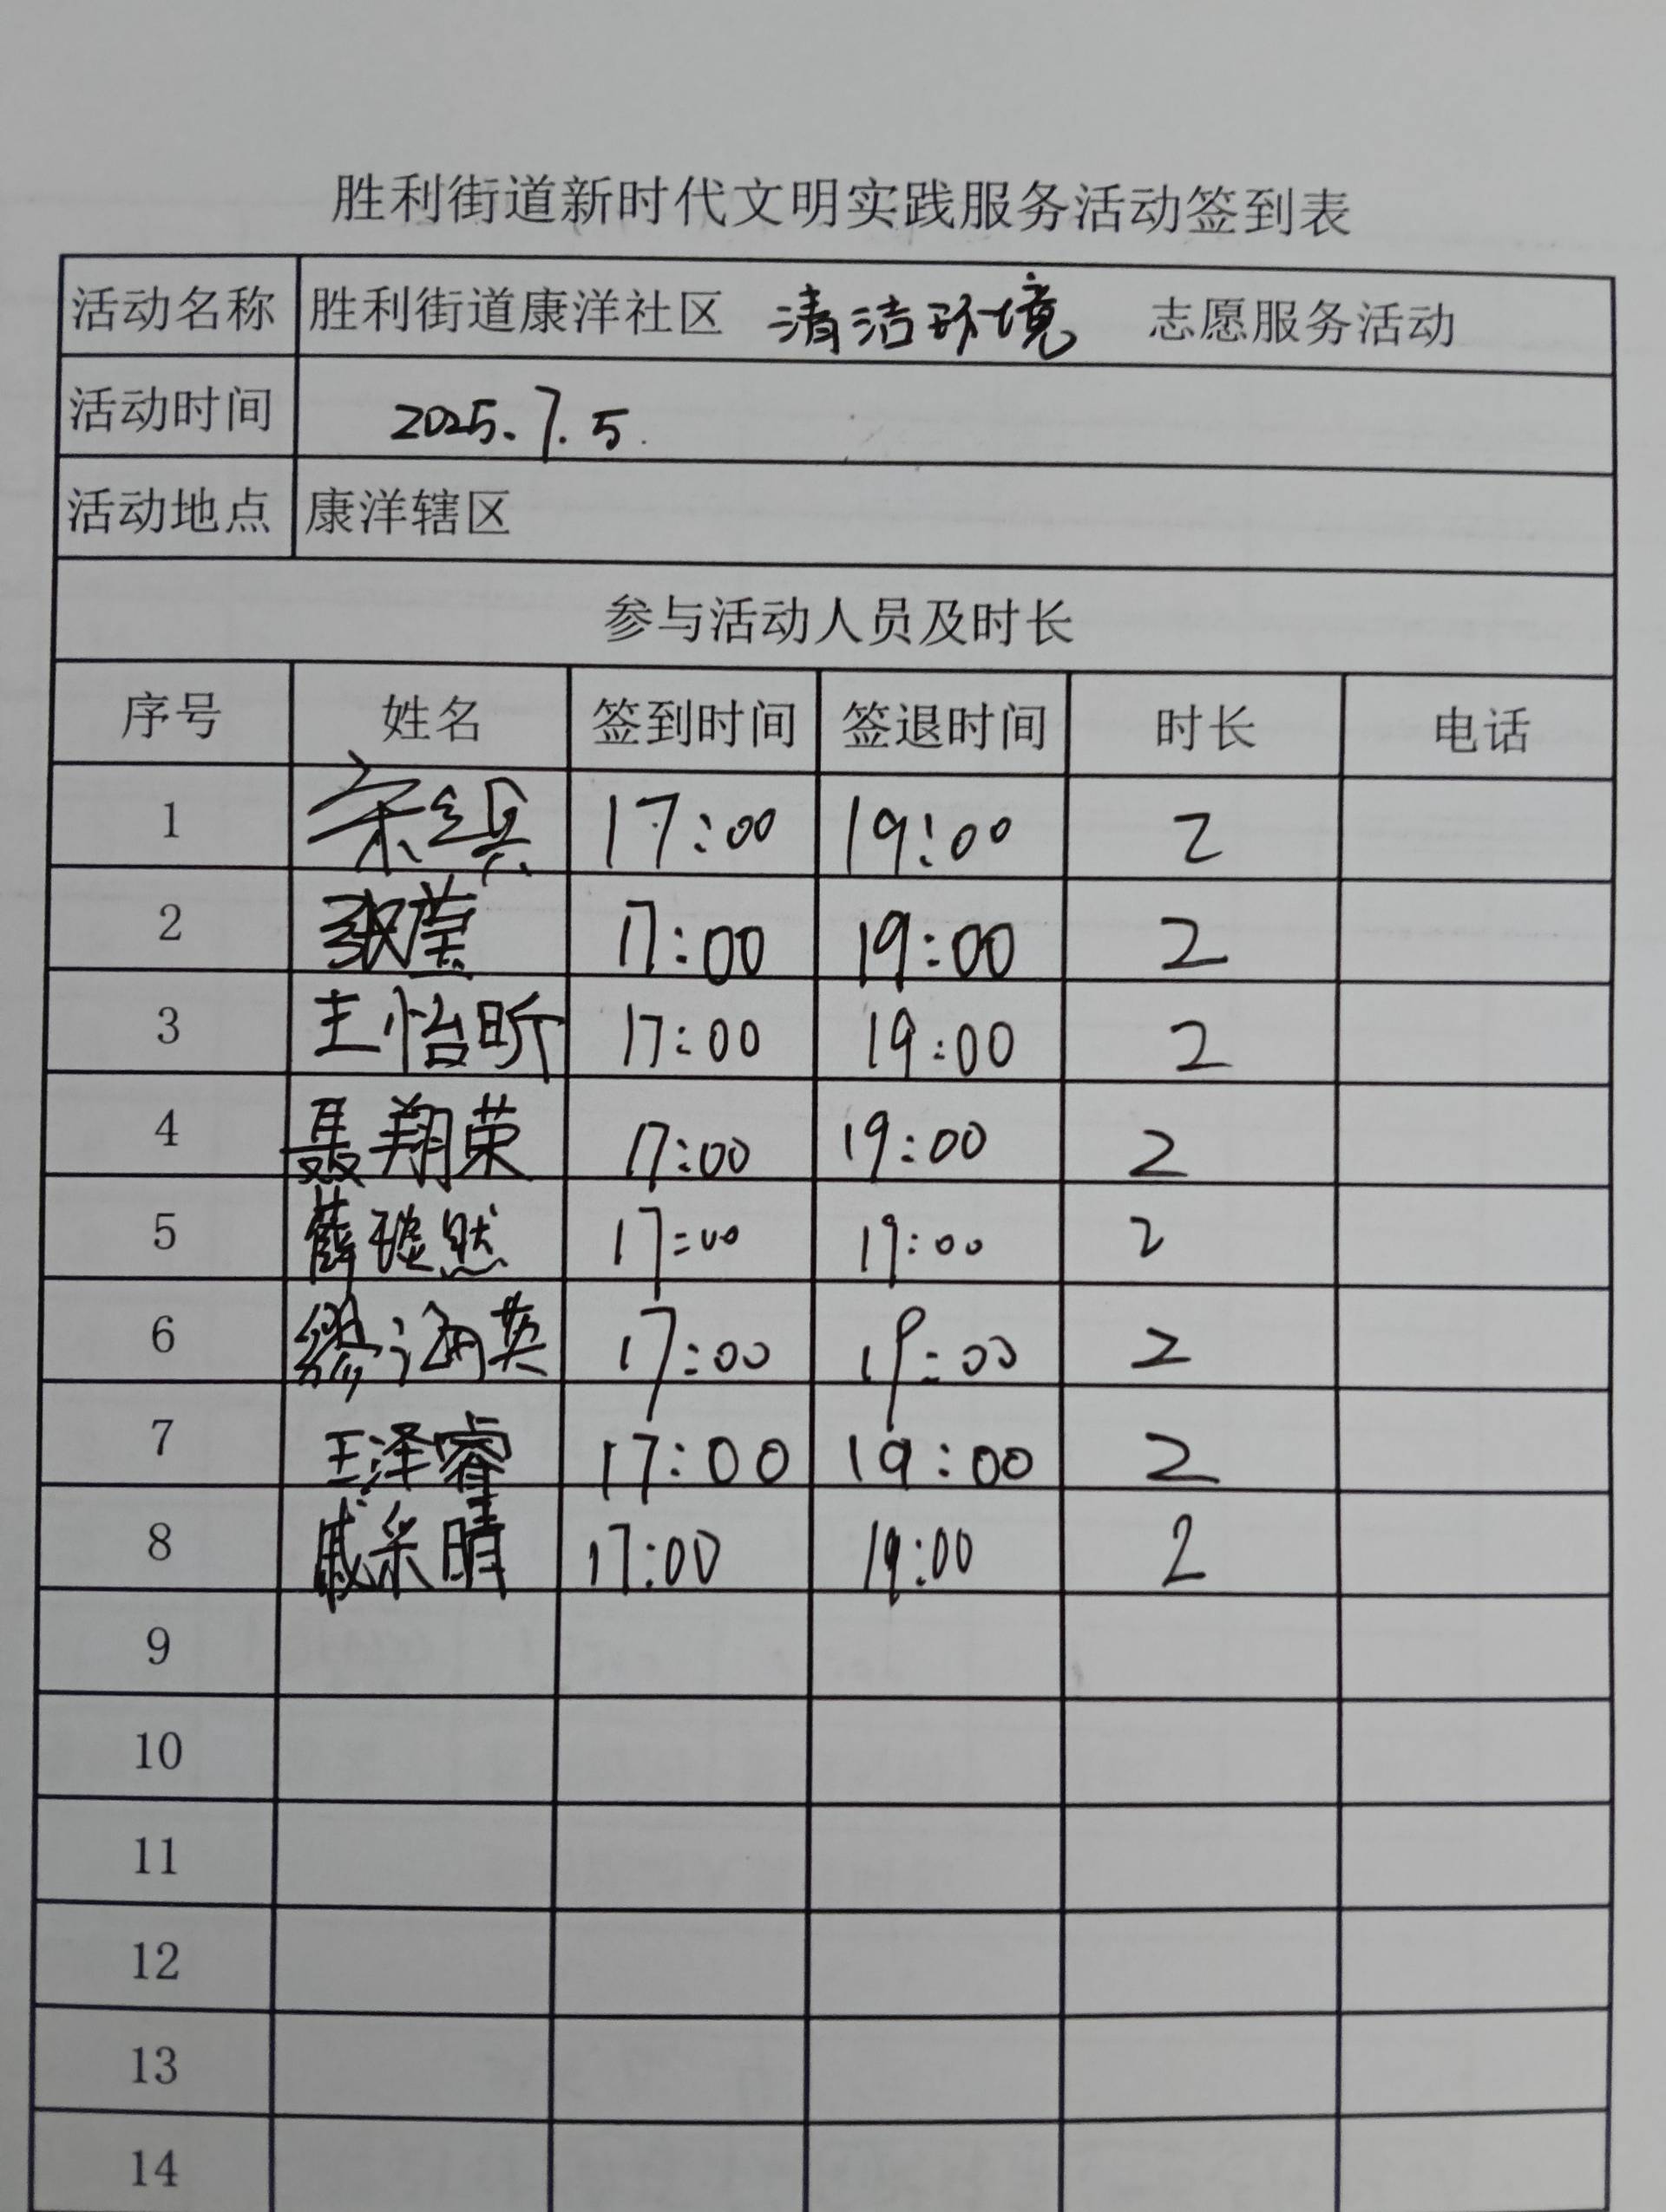 胜利街道新时代文明实践服务活动签到表
活动名称 胜利街道康洋社区 清洁环境 志愿服务活动
活动时间 2025.7.5.
活动地点 康洋辖区
参与活动人员及时长
序号 姓名 签到时间 签退时间 时长 电话
1 宋 17:00 19:00 2
2 张莹 17:00 19:00 2
3 王怡昕 17:00 19:00 2
4 聂翔荣 17:00 19:00 2
5 薛琥然 17:00 19:00 2
6 缪涵英 17:00 19:00 2
7 王泽睿 17:00 19:00 2
8 戚采晴 17:00 19:00 2
9
10
11
12
13
14